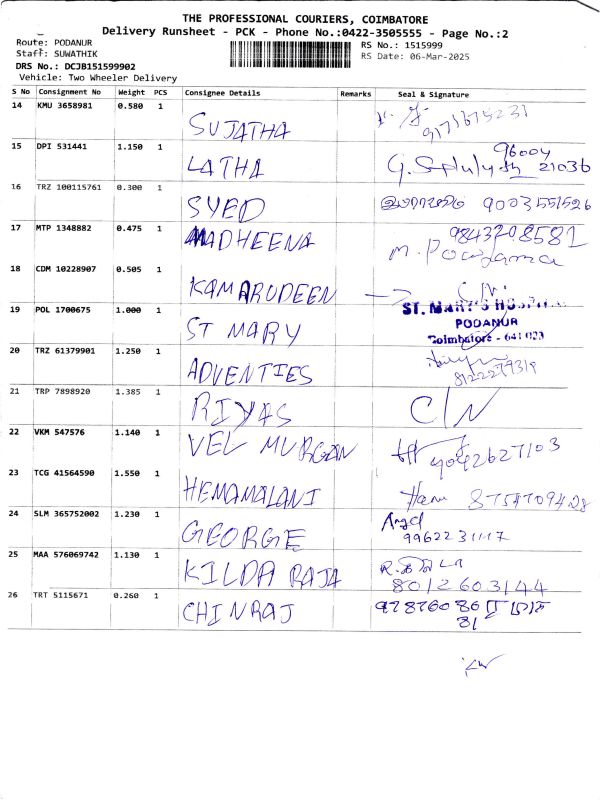 THE PROFESSIONAL COURIERS, COIMBATORE
Delivery Runsheet - PCK - Phone No.:0422-3505555 - Page No.:2
Route: PODANUR
RS No.: 1515999
Staff: SUWATHIK
RS Date: 06-Mar-2025
DRS No.: DCJB151599902
Vehicle: Two Wheeler Delivery
S No Consignment No Weight PCS Consignee Details Remarks Seal & Signature
14 KMU 3658981 0.580 1 SUJATHA
15 DPI 531441 1.150 1 LATHA 96004 21036
16 TRZ 100115761 0.300 1 SYED 9003551526
17 MTP 1348882 0.475 1 MADHEENA 9843208581
18 CDM 10228907 0.505 1 KAMARUDEEN C/N
19 POL 1700675 1.000 1 ST MARY ST. MARY'S HOSPITAL
PODANUR
Coimbatore - 641 023
20 TRZ 61379901 1.250 1 ADVENTIES 8122279319
21 TRP 7898920 1.385 1 RIYAS C/N
22 VKM 547576 1.140 1 VEL MURGAN 9042627103
23 TCG 41564590 1.550 1 HEMAMALANI
24 SLM 365752002 1.230 1 GEORGE
25 MAA 576069742 1.130 1 KILDA RAJA 8012603144
26 TRT 5115671 0.260 1 CHINRAJ
81